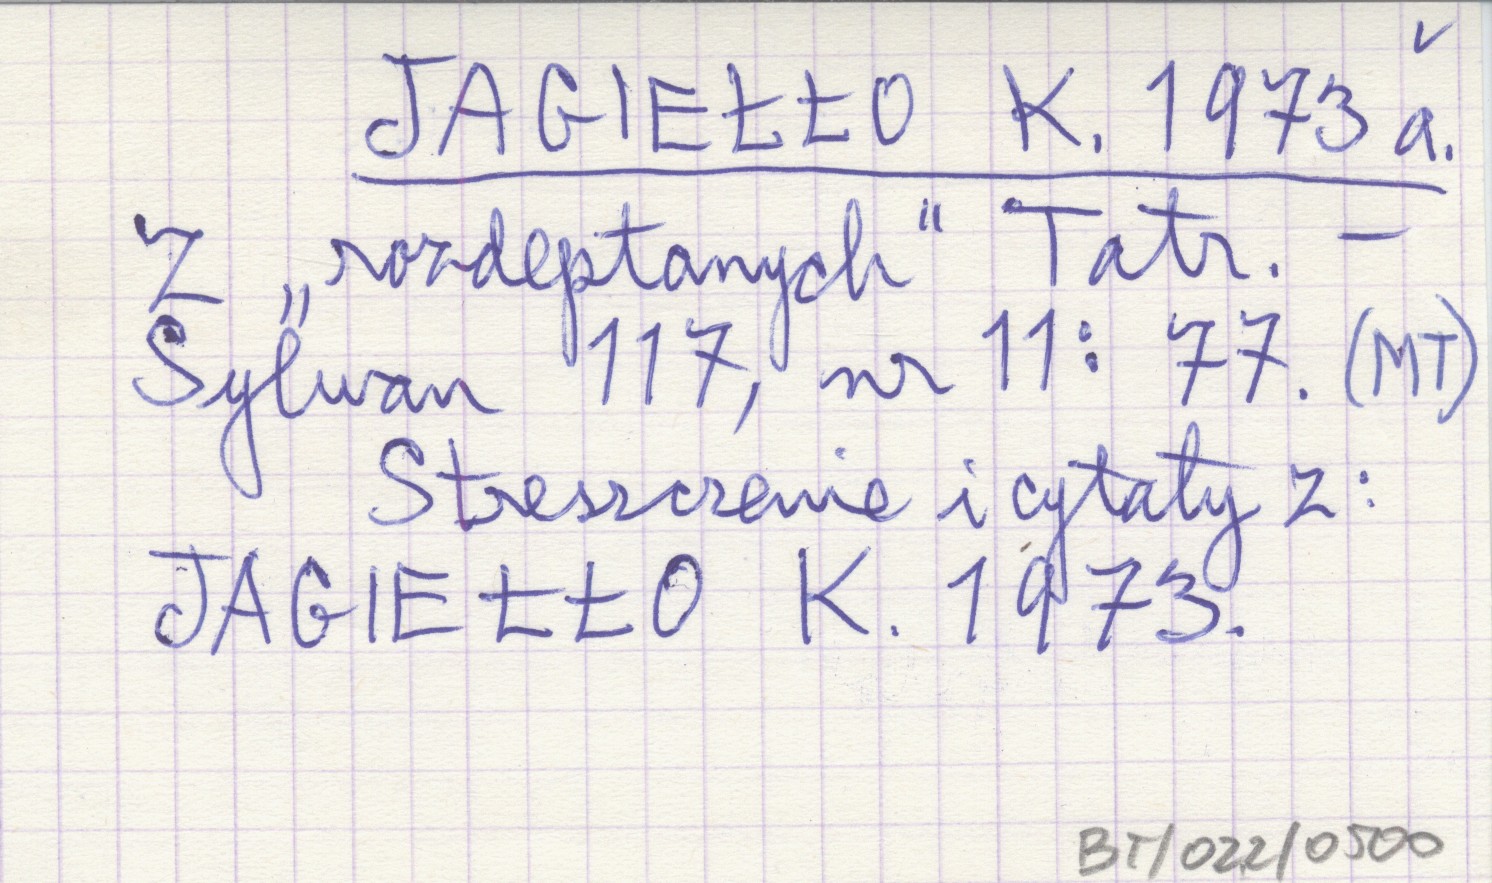 JAGIEŁŁO K. 1973 a.
Z „rozdeptanych" Tatr. –
Sylwan 117, nr 11: 77. (MT)
Streszczenie i cytaty z:
JAGIEŁŁO K. 1973.
BT/022/0500